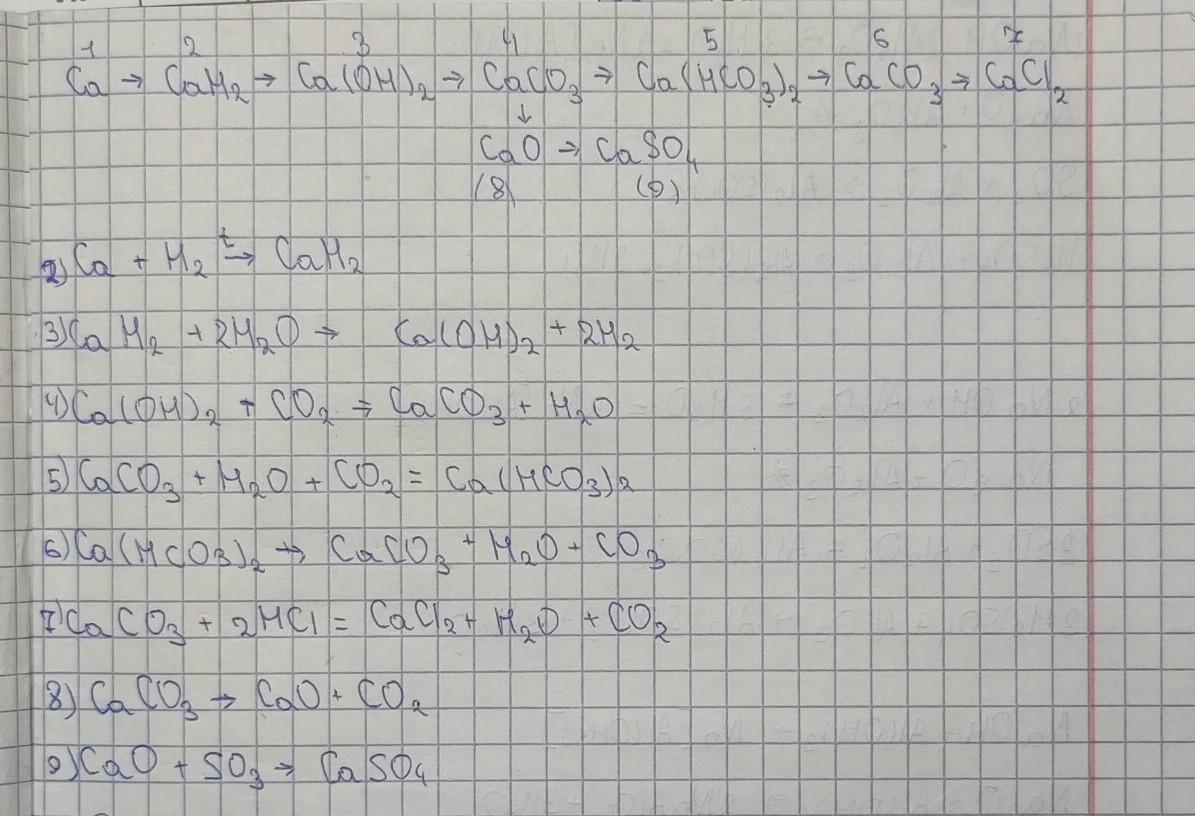 1 2 3 4 5 6 7
Ca → CaH₂ → Ca(OH)₂ → CaCO₃ → Ca(HCO₃)₂ → CaCO₃ → CaCl₂
↓
CaO → CaSO₄
(8) (9)
2) Ca + H₂ →ᵗ CaH₂
3) CaH₂ + 2H₂O → Ca(OH)₂ + 2H₂
4) Ca(OH)₂ + CO₂ → CaCO₃ + H₂O
5) CaCO₃ + H₂O + CO₂ = Ca(HCO₃)₂
6) Ca(HCO3)₂ → CaCO₃ + H₂O + CO₃
7) CaCO₃ + 2HCl = CaCl₂ + H₂O + CO₂
8) CaCO₃ → CaO + CO₂
9) CaO + SO₃ → CaSO₄